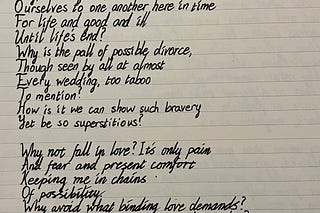 Ourselves to one another here in time
For life and good and ill
Until life's end?
Why is the pall of possible divorce,
Though seen by all at almost
Every wedding, too taboo
To mention?
How is it we can show such bravery
Yet be so superstitious?
Why not fall in love? It's only pain
And fear and present comfort
Keeping me in chains
Of possibility.
Why avoid what binding love demands?